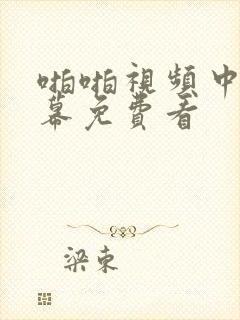 啪啪視頻中
幕免費看
梁束